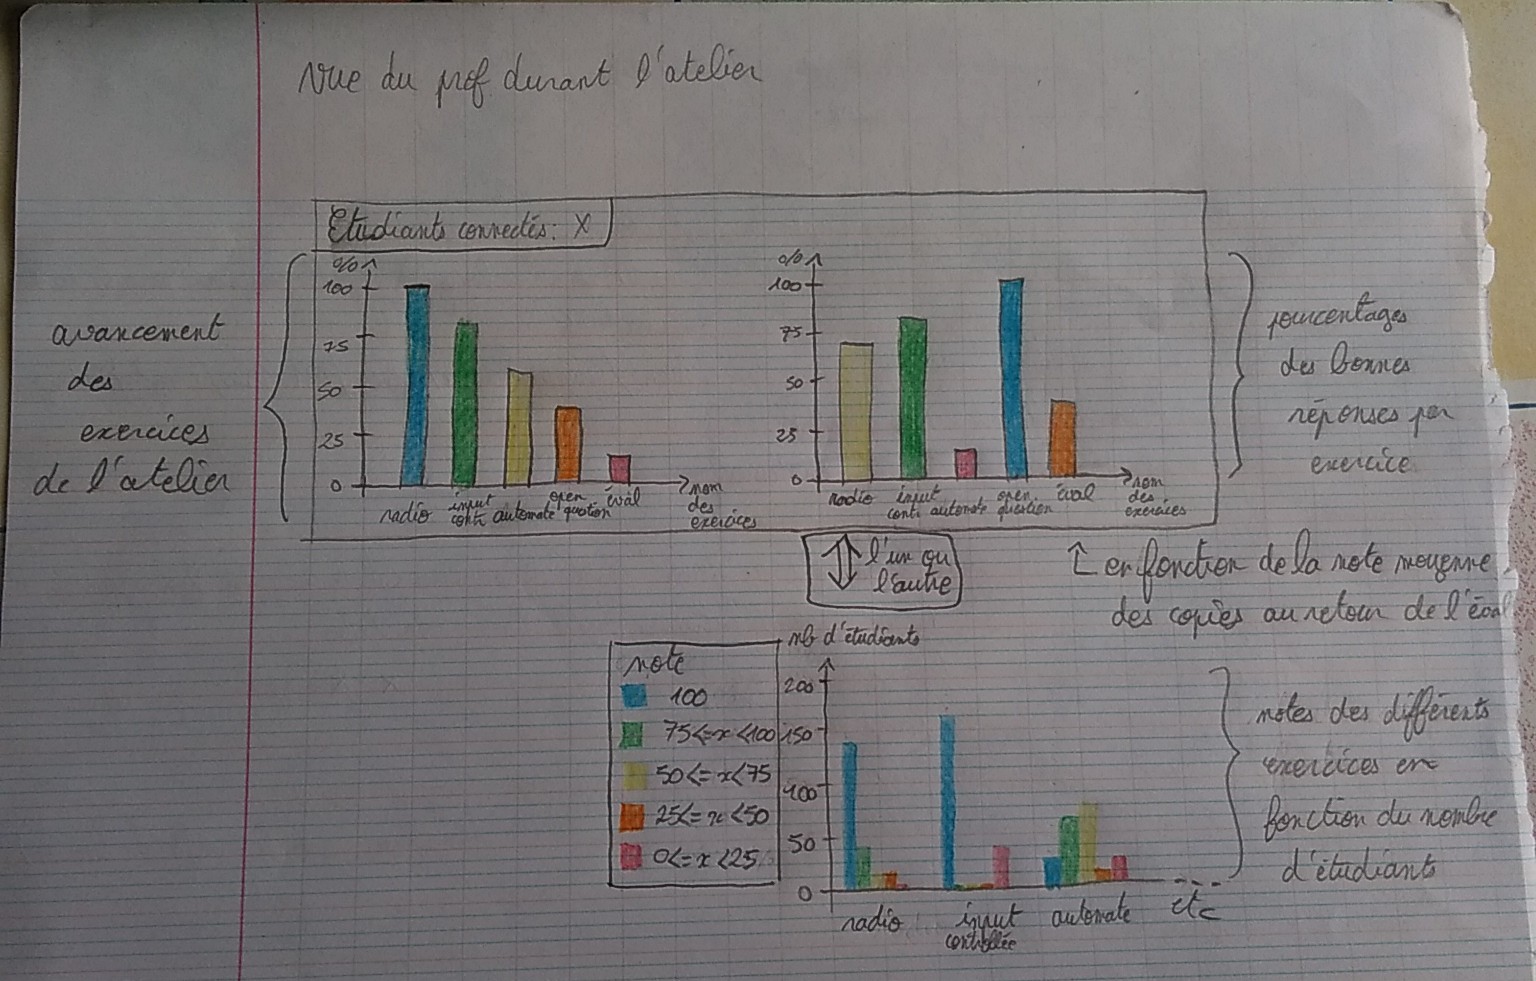 Vue du prof durant l'atelier
Etudiants connectés: X
avancement
des
exercices
de l'atelier
%
100
75
50
25
0
radio
input
contr.
automate
open
question
éval
nom
des
exercices
%
100
75
50
25
0
radio
input
contr.
automate
open
question
éval
nom
des
exercices
pourcentages
des bonnes
réponses par
exercice
l'un ou
l'autre
en fonction de la note moyenne
des copies au retour de l'éval
note
100
75<=x<100
50<=x<75
25<=x<50
0<=x<25
nb d'étudiants
200
150
100
50
0
radio
input
contrôlée
automate
etc
notes des différents
exercices en
fonction du nombre
d'étudiants